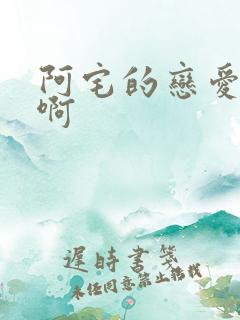 阿宅的戀愛
啊
遲時書箋
未經同意禁止搭找